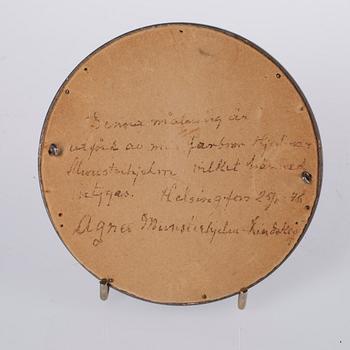 Denna målning är
utförd av min farbror Hjalmar
Munsterhjelm vilket härmed
intygas. Helsingfors 25/ 76
Agnes Munsterhjelm